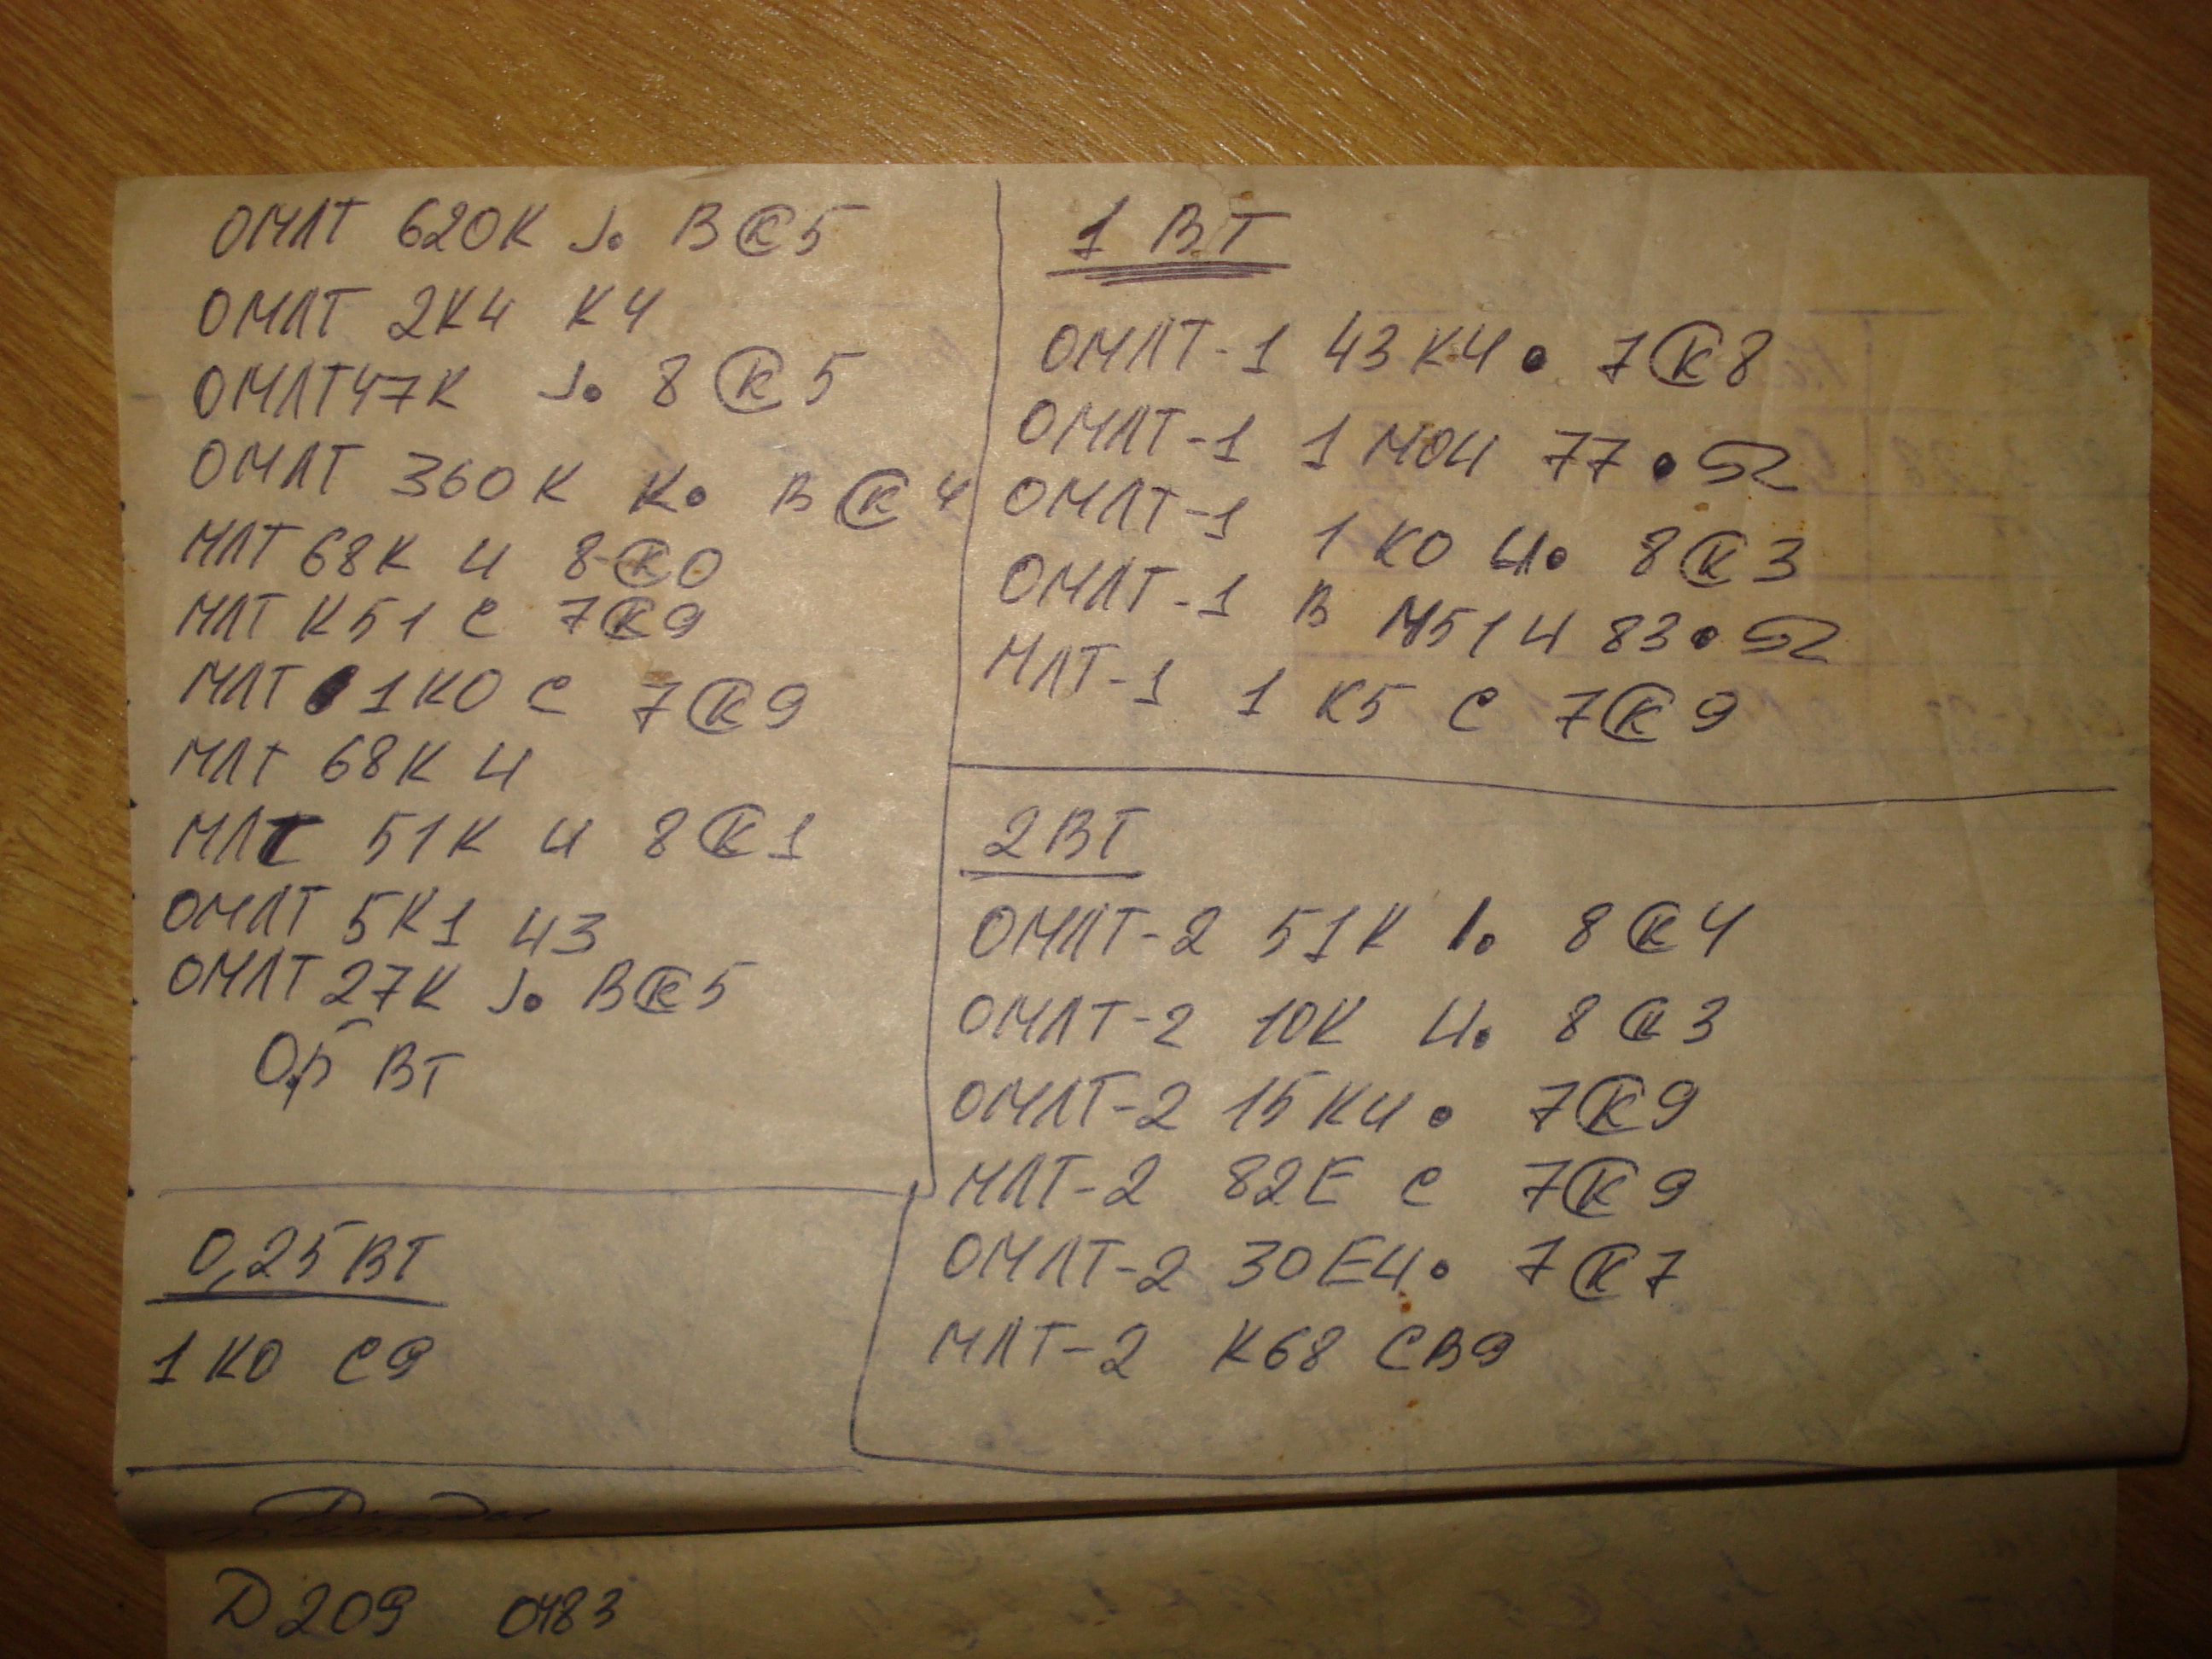 ОМЛТ 620К J• В Ⓚ 5
ОМЛТ 2К4 К4
ОМЛТ 47К J• 8 Ⓚ 5
ОМЛТ 360К К• В Ⓚ 4
МЛТ 68К И 8 Ⓚ 0
МЛТ К51 С 7 Ⓚ 9
МЛТ 1К0 С 7 Ⓚ 9
МЛТ 68К И
МЛТ 51К И 8 Ⓚ 1
ОМЛТ 5К1 И3
ОМЛТ 27К J• В Ⓚ 5
0,5 ВТ
0,25 ВТ
1К0 С9
1 ВТ
ОМЛТ-1 43КИ• 7 Ⓚ 8
ОМЛТ-1 1М0И 77•Ω
ОМЛТ-1 1К0 И• 8 Ⓚ 3
ОМЛТ-1 В М51И 83•Ω
МЛТ-1 1К5 С 7 Ⓚ 9
2ВТ
ОМЛТ-2 51К I• 8 Ⓚ 4
ОМЛТ-2 10К И• 8 Ⓚ 3
ОМЛТ-2 15КИ• 7 Ⓚ 9
МЛТ-2 82Е С 7 Ⓚ 9
ОМЛТ-2 30ЕИ• 7 Ⓚ 7
МЛТ-2 К68 СВ9
Диоды
Д209 0483